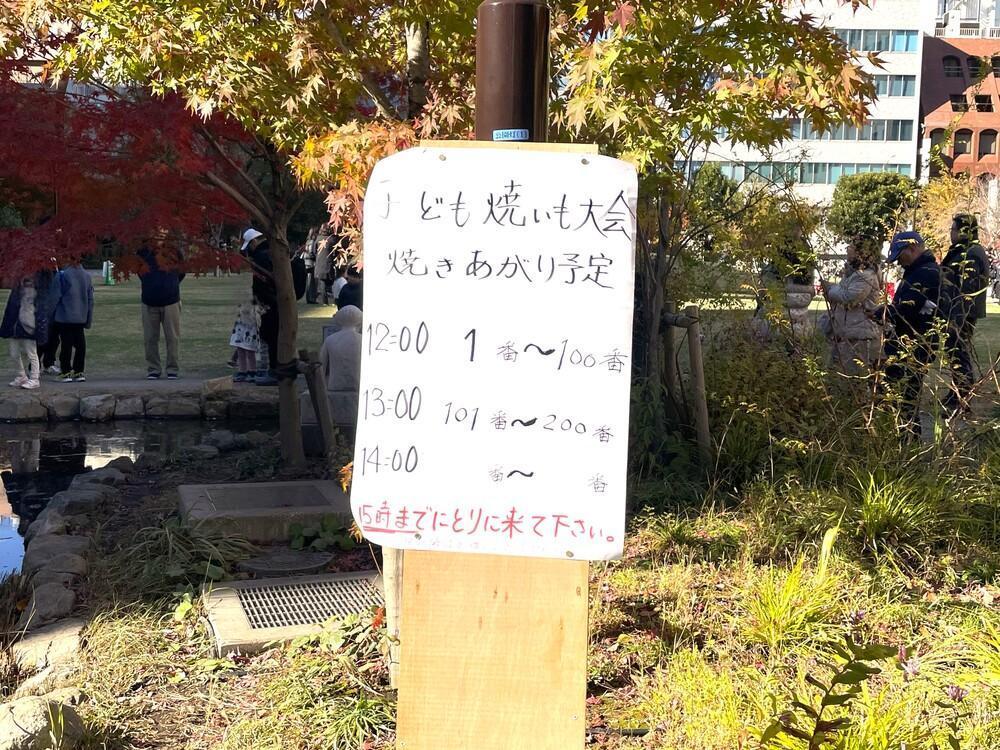 公園灯(1)
子ども焼いも大会
焼きあがり予定
12:00 1番〜100番
13:00 101番〜200番
14:00 番〜 番
15時までにとりに来て下さい。